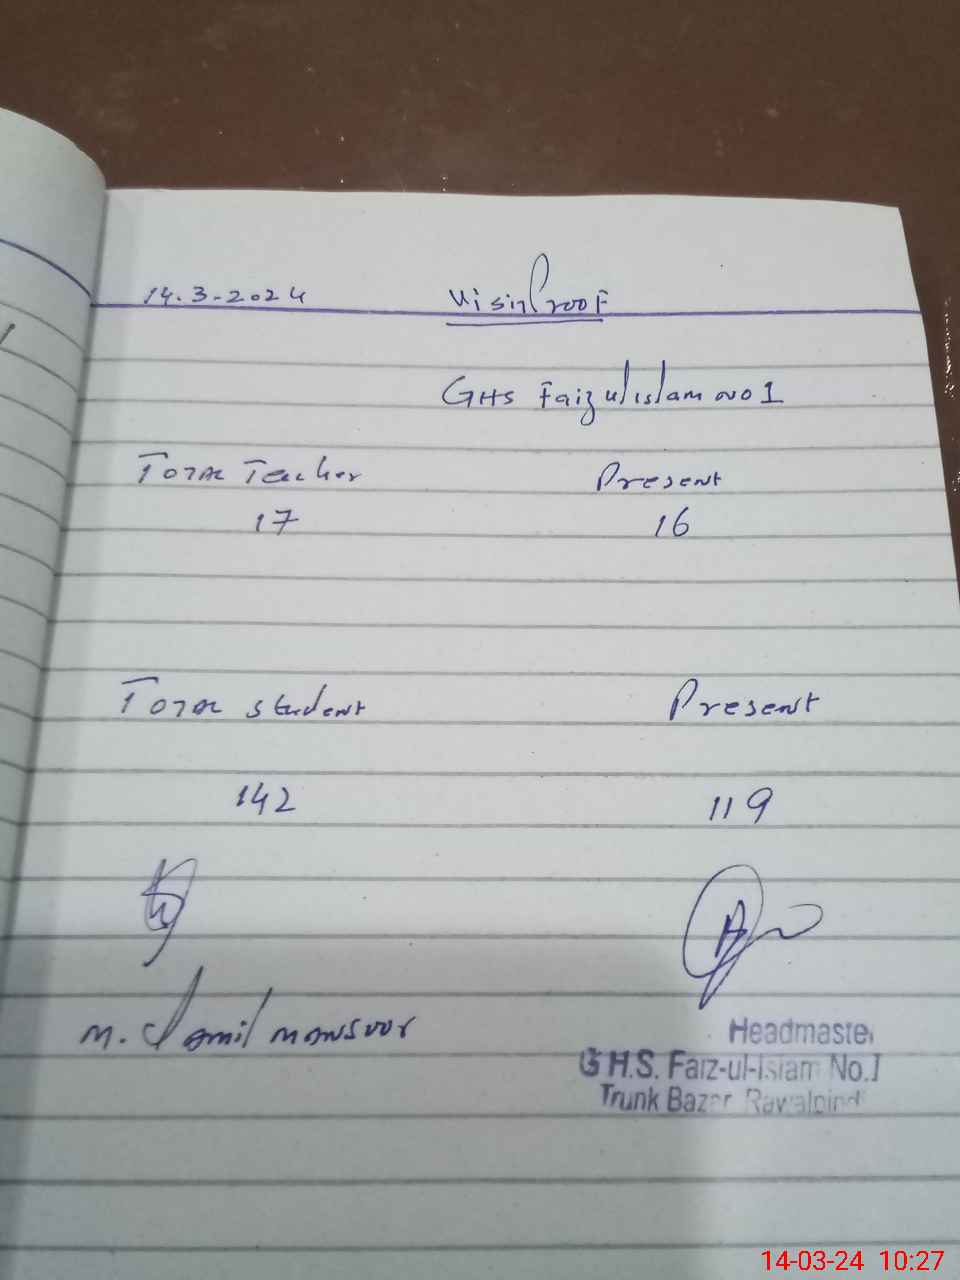 14.3-2024 Visit Proof
GHS Faizulislam No 1
Total Teacher Present
17 16
Total student Present
142 119
M. Jamil Mansoor
Headmaster
G.H.S. Faiz-ul-Islam No.I
Trunk Bazar Rawalpindi
14-03-24 10:27